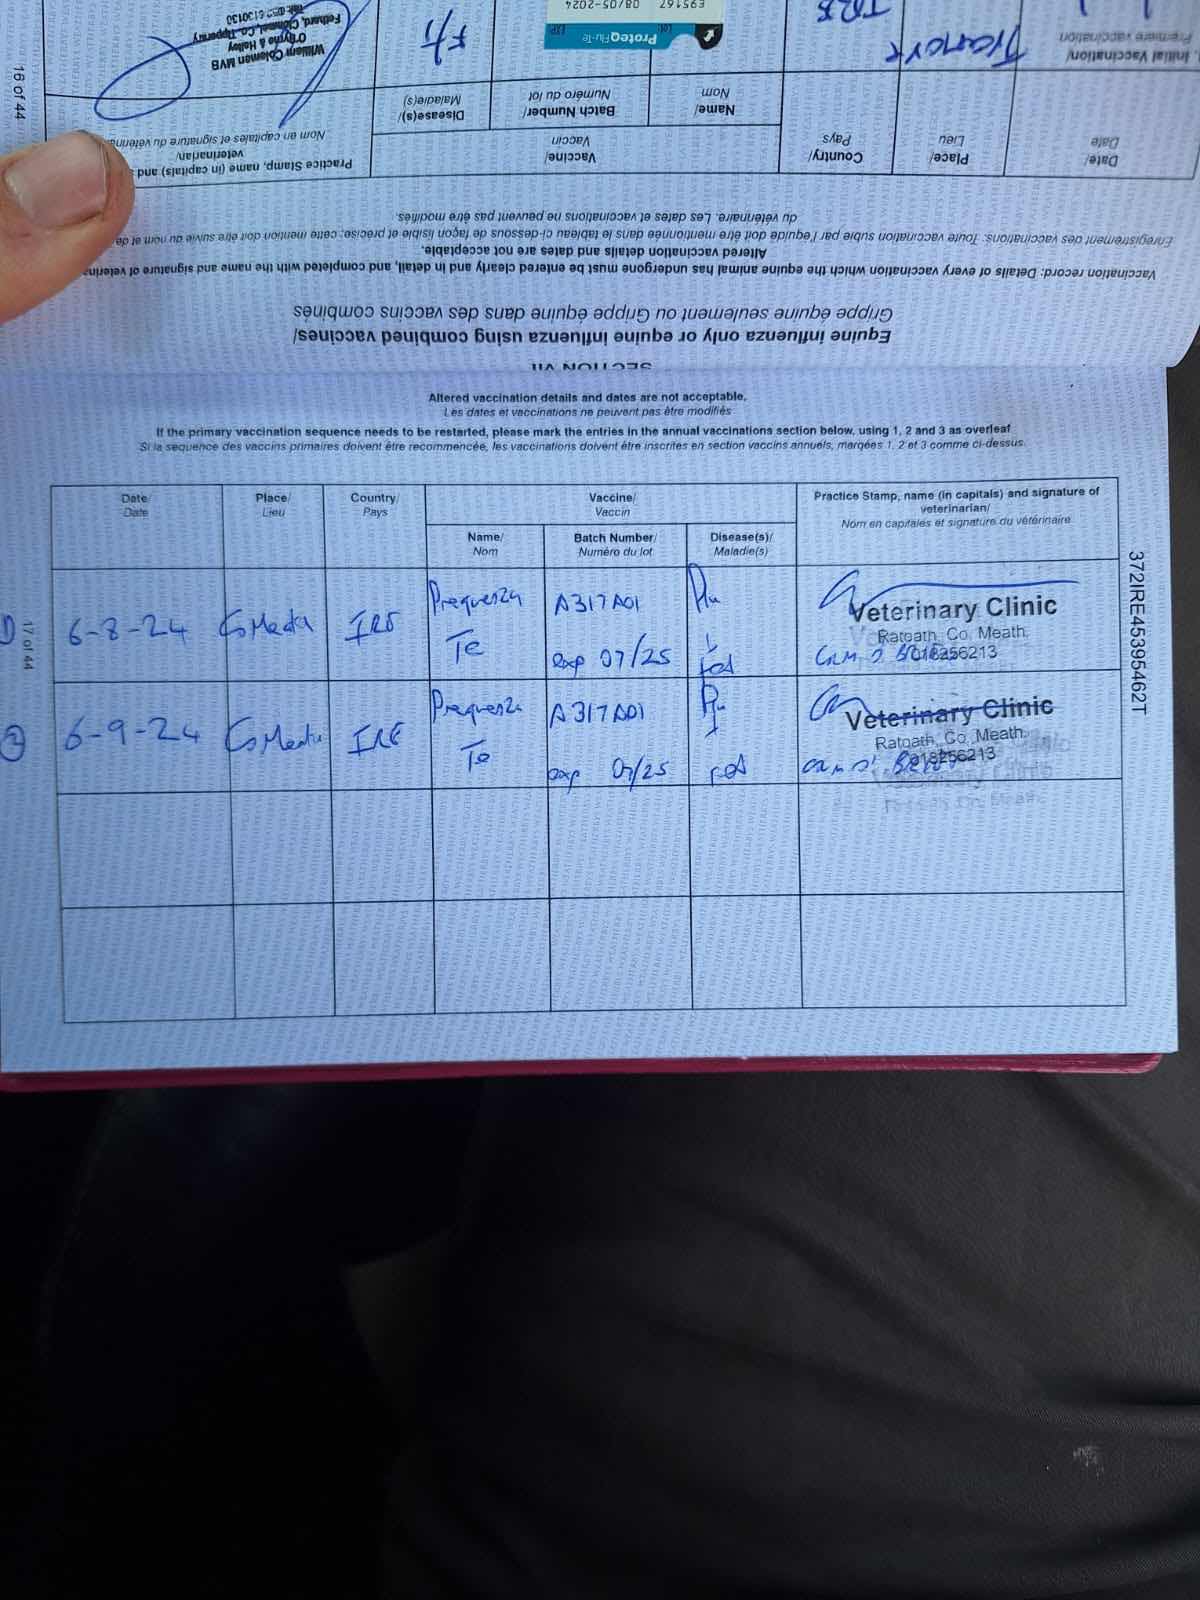 16 of 44
Initial Vaccination/
Premiere vaccination
Tramore
F/T
Proteq Flu-Te
Lot
EXP
E95167 08/05-2024
William Coleman MVB
O'Byrne & Halley
Fethard, Clonmel, Co. Tipperary
Date/
Date
Place/
Lieu
Country/
Pays
Vaccine/
Vaccin
Name/
Nom
Batch Number/
Numéro du lot
Disease(s)/
Maladie(s)
Practice Stamp, name (in capitals) and
veterinarian/
Nom en capitales et signature du vétérinaire
Enregistrement des vaccinations: Toute vaccination subie par l'équidé doit être mentionnée dans le tableau ci-dessous de façon lisible et précise: cette mention doit être suivie du nom et de
du vétérinaire. Les dates et vaccinations ne peuvent pas être modifiés.
Vaccination record: Details of every vaccination which the equine animal has undergone must be entered clearly and in detail, and completed with the name and signature of veterina
Altered vaccination details and dates are not acceptable.
Equine influenza only or equine influenza using combined vaccines/
Grippe équine seulement ou Grippe équine dans des vaccins combinés
SECTION VII
Altered vaccination details and dates are not acceptable.
Les dates et vaccinations ne peuvent pas être modifiés
If the primary vaccination sequence needs to be restarted, please mark the entries in the annual vaccinations section below, using 1, 2 and 3 as overleaf
Si la sequence des vaccins primaires doivent être recommencée, les vaccinations doivent être inscrites en section vaccins annuels, margées 1, 2 et 3 comme ci-dessus.
Date/
Date
Place/
Lieu
Country/
Pays
Vaccine/
Vaccin
Name/
Nom
Batch Number/
Numéro du lot
Disease(s)/
Maladie(s)
Practice Stamp, name (in capitals) and signature of
veterinarian/
Nom en capitales et signature du vétérinaire
1
6-8-24 Co Meath IRE
Prequenza
Te
A317A01
exp 07/25
Flu
Tet
Veterinary Clinic
Ratoath, Co. Meath.
018256213
2
6-9-24 Co Meath IRE
Prequenza
Te
A317A01
exp 07/25
Flu
+
Tet
Veterinary Clinic
Ratoath, Co. Meath.
018256213
17 of 44
372IRE45395462T